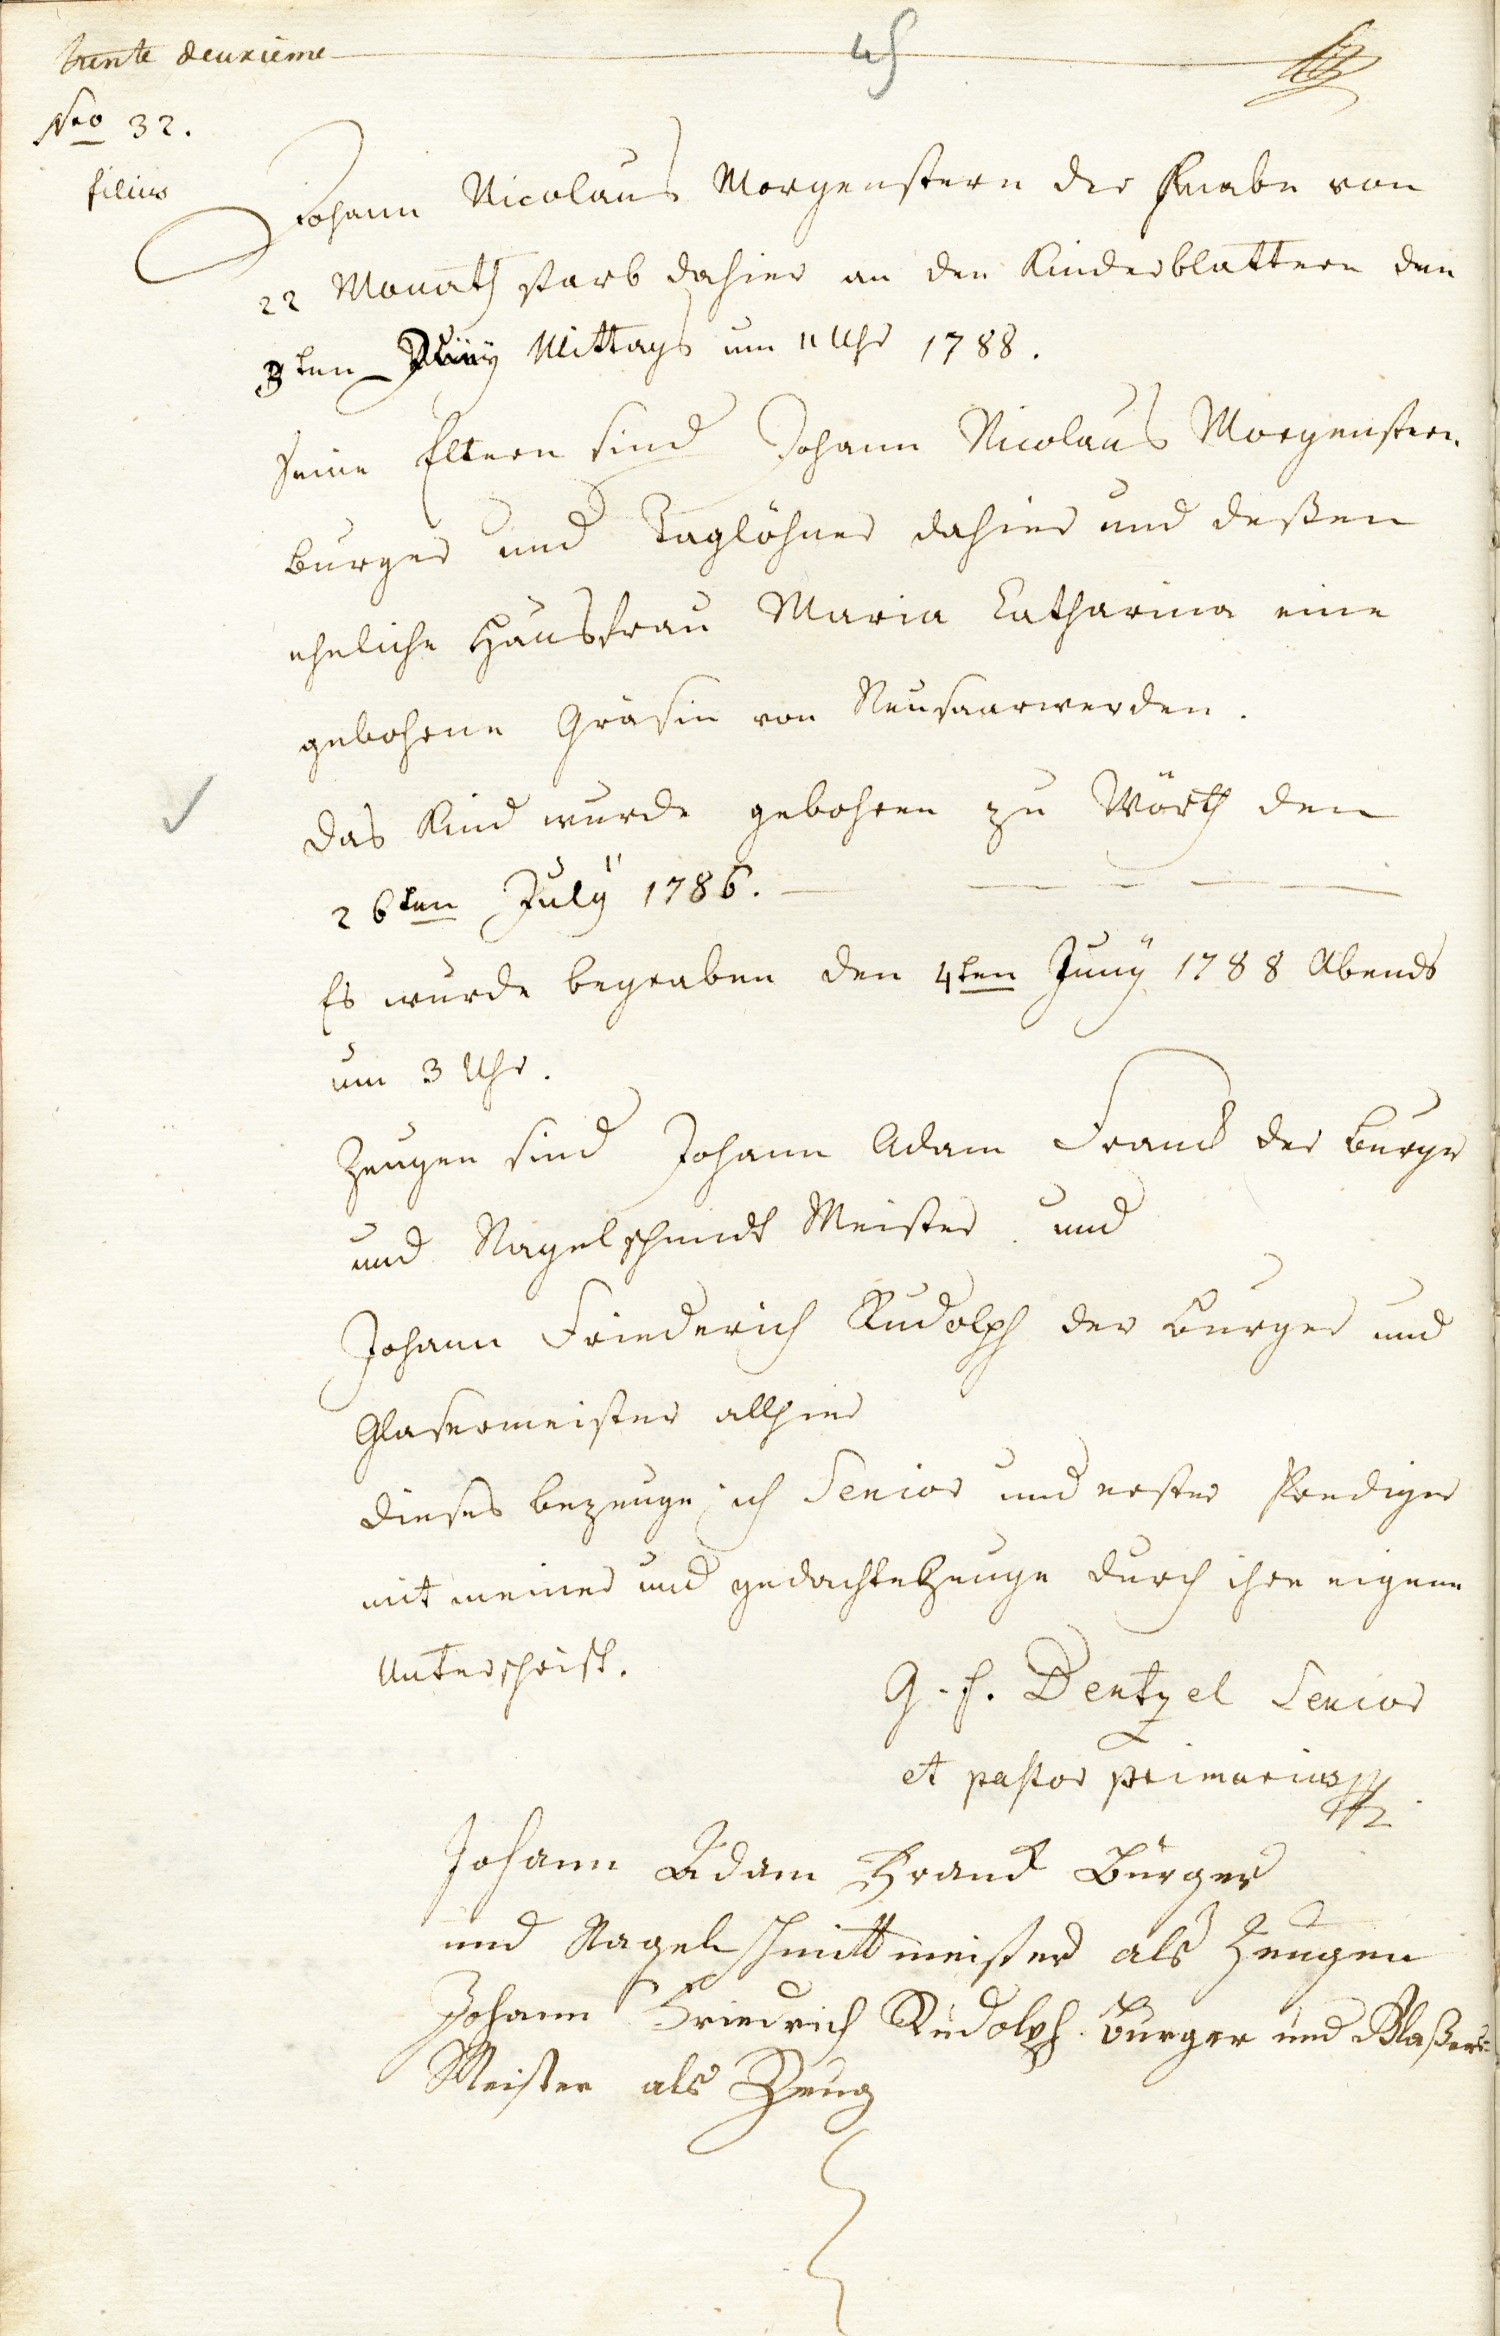 trente deuxieme
45
Nro 32.
filius
Johann Nicolaus Morgenstern der Knabe von
22 Monath starb dahier an den Kinderblattern den
3ten Juny Mittags um 11 Uhr 1788.
seine Eltern sind Johann Nicolaus Morgenstern
burger und Taglöhner dahier und deßen
eheliche Hausfrau Maria Catharina eine
gebohrne Gräsin von Neusaarwerden.
das Kind wurde gebohren zu Wörth den
26ten July 1786.
Es wurde begraben den 4ten Juny 1788 Abends
um 3 Uhr.
Zeugen sind Johann Adam Franck der burger
und Nagelschmidt Meister und
Johann Friederich Rudolph der burger und
Glasermeister allhier
dieses bezeuge ich Senior und erster Prediger
mit meiner und gedachte Zeuge durch ihre eigene
Unterschrift.
G. F. Dentzel Senior
et pastor primarius
Johann Adam Franck Bürger
und Nagelschmittmeister als Zeugen
Johann Friedrich Rudolph Burger und Glaßer-
Meister als Zeug